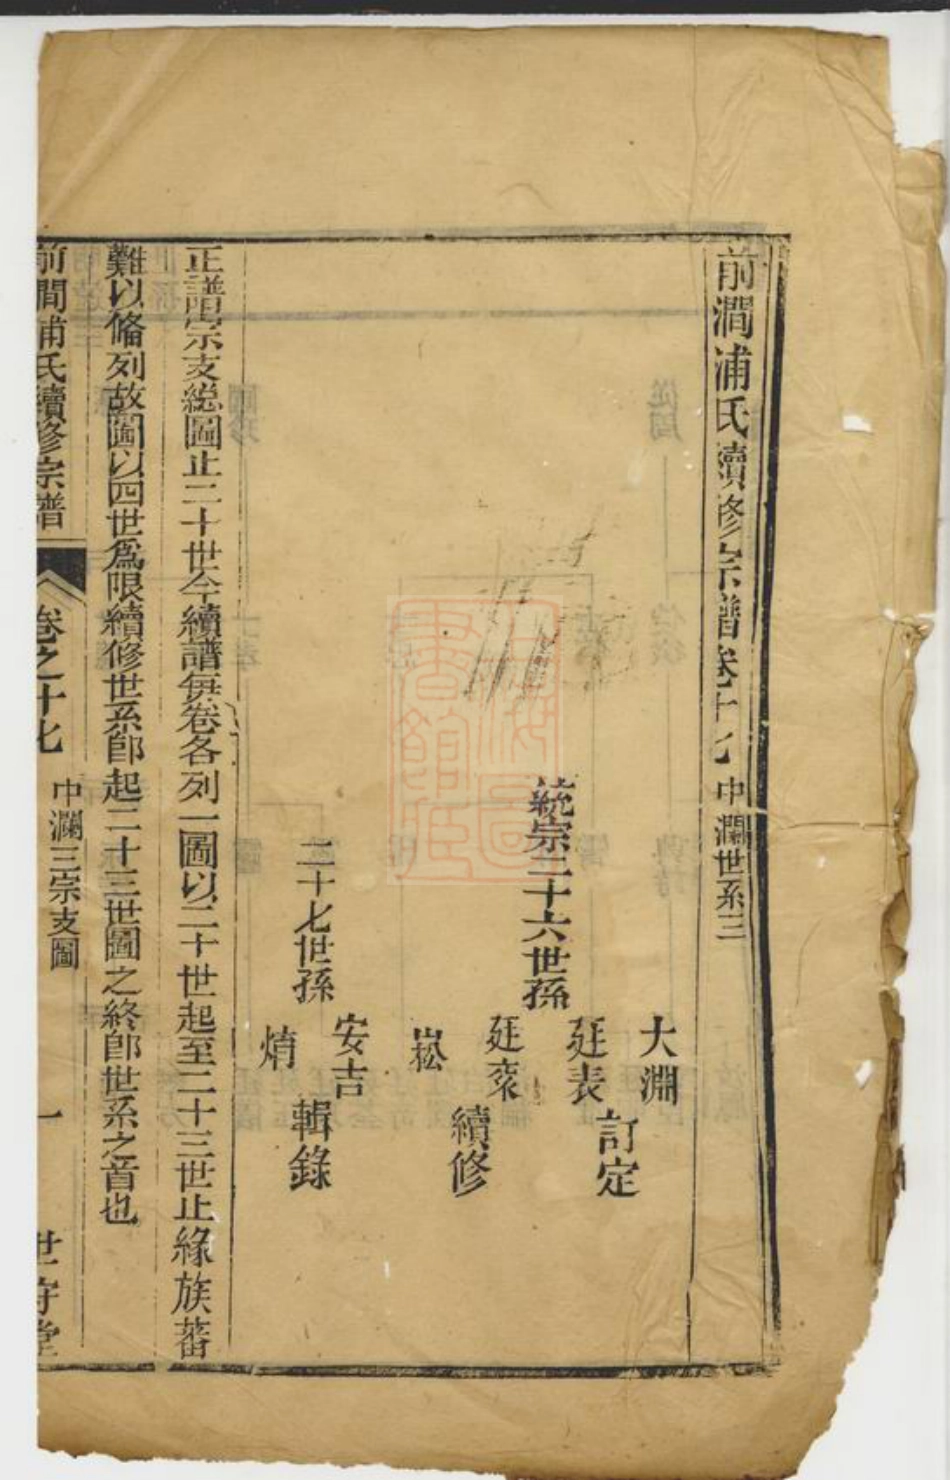 前澗浦氏續修宗譜卷十七 中瀾世系三
大淵
廷表
訂定
統宗二十六世孫
廷袞
崧
續修
二十七世孫
安吉
焇
輯錄
正譜宗支總圖止二十世今續譜每卷各列一圖以二十世起至二十三世止緣族蕃
難以俻列故圖以四世爲限續修世系卽起二十三世圖之終卽世系之首也
前澗浦氏續修宗譜 卷之十七 中瀾三宗支圖 一 世守堂